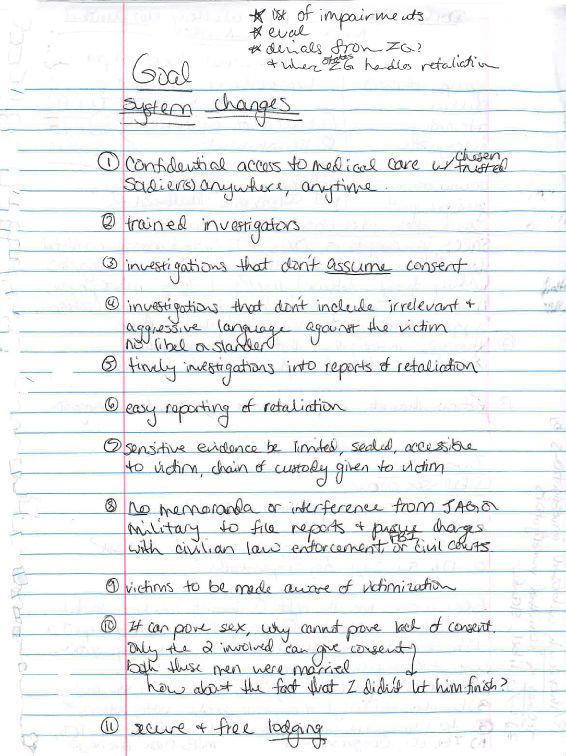 * list of impairments
* eval
* denials from ZG?
+ when states ZG handles retaliation
Goal
System changes
① Confidential access to medical care w/ chosen trusted
Soldier(s) anywhere, anytime.
② trained investigators
③ investigations that don't assume consent
④ investigations that don't include irrelevant +
aggressive language against the victim
no libel or slander
⑤ timely investigations into reports of retaliation
⑥ easy reporting of retaliation
⑦ sensitive evidence be limited, sealed, accessible
to victim, chain of custody given to victim
⑧ No memoranda or interference from JAG or
military to file reports + pursue charges
with civilian law enforcement, FBI or civil courts.
⑨ victims to be made aware of victimization
⑩ If can prove sex, why cannot prove lack of consent.
Only the 2 involved can give consent
both these men were married
how about the fact that I didn't let him finish?
⑪ secure + free lodging